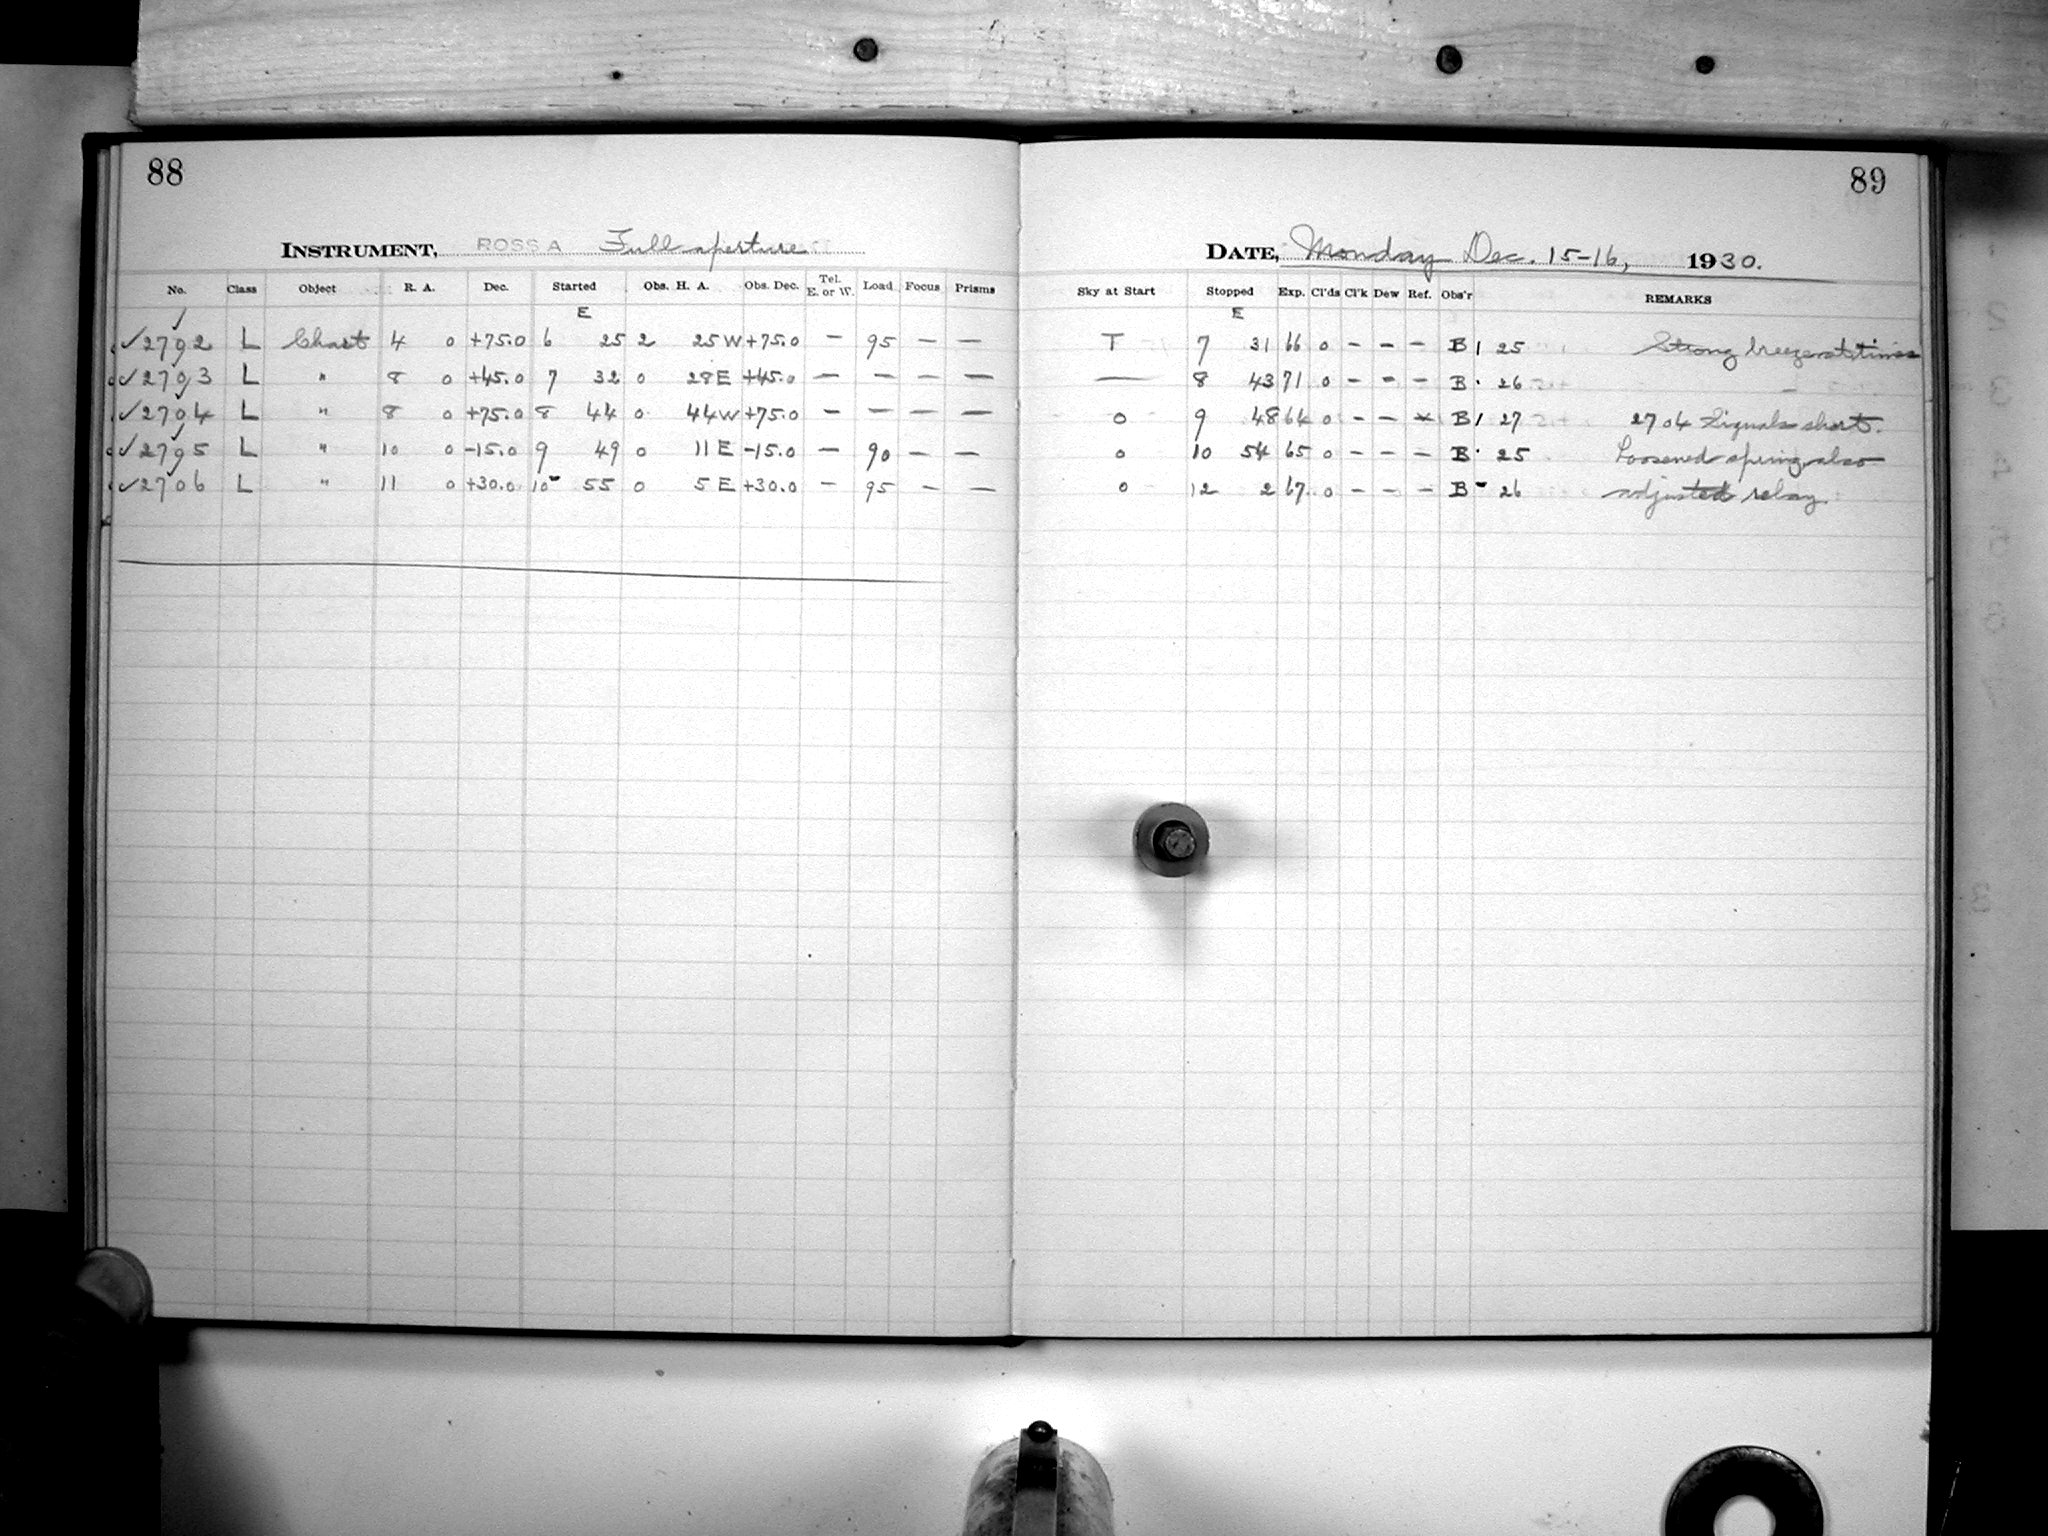 88
INSTRUMENT, ROSS A Full aperture
No. Class Object R. A. Dec. Started Obs. H. A. Obs. Dec. Tel. E. or W. Load Focus Prisms
E
✓2702 L Chart 4 0 +75.0 6 25 2 25 W +75.0 — 95 — —
✓2703 L " 8 0 +45.0 7 32 0 28 E +45.0 — — — —
✓2704 L " 8 0 +75.0 8 44 0 44 W +75.0 — — — —
✓2705 L " 10 0 -15.0 9 49 0 11 E -15.0 — 90 — —
✓2706 L " 11 0 +30.0 10 55 0 5 E +30.0 — 95 — —
89
DATE, Monday Dec. 15-16, 1930.
Sky at Start Stopped Exp. Cl'ds Cl'k Dew Ref. Obs'r REMARKS
E
T 7 31 66 0 - - - B 25 Strong breeze at times
— 8 43 71 0 - - - B 26
0 9 48 64 0 - - * B 27 2704 Signals short.
0 10 54 65 0 - - - B 25 Loosened spring also
0 12 2 67 0 - - - B 26 adjusted relay.